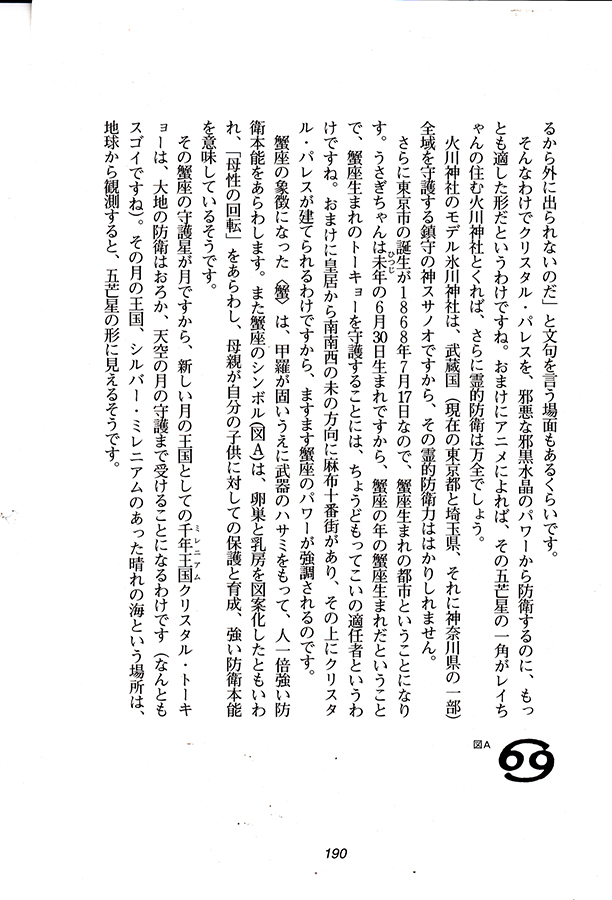 るから外に出られないのだ」と文句を言う場面もあるくらいです。
そんなわけでクリスタル・パレスを、邪悪な邪黒水晶のパワーから防衛するのに、もっ
とも適した形だというわけですね。おまけにアニメによれば、その五芒星の一角がレイち
ゃんの住む火川神社とくれば、さらに霊的防衛は万全でしょう。
火川神社のモデル氷川神社は、武蔵国（現在の東京都と埼玉県、それに神奈川県の一部）
全域を守護する鎮守の神スサノオですから、その霊的防衛力ははかりしれません。
さらに東京市の誕生が1868年7月17日なので、蟹座生まれの都市ということになり
ます。うさぎちゃんは未年の6月30日生まれですから、蟹座の年の蟹座生まれだということ
で、蟹座生まれのトーキョーを守護することには、ちょうどもってこいの適任者というわ
けですね。おまけに皇居から南南西の未の方向に麻布十番街があり、その上にクリスタ
ル・パレスが建てられるわけですから、ますます蟹座のパワーが強調されるのです。
蟹座の象徴になった〈蟹〉は、甲羅が固いうえに武器のハサミをもって、人一倍強い防
衛本能をあらわします。また蟹座のシンボル（図A）は、卵巣と乳房を図案化したともいわ
れ、「母性の回転」をあらわし、母親が自分の子供に対しての保護と育成、強い防衛本能
を意味しているそうです。
その蟹座の守護星が月ですから、新しい月の王国としての千年王国クリスタル・トーキ
ミレニアム
ョーは、大地の防衛はおろか、天空の月の守護まで受けることになるわけです（なんとも
スゴイですね）。その月の王国、シルバー・ミレニアムのあった晴れの海という場所は、
地球から観測すると、五芒星の形に見えるそうです。
ひつじ
図A
190